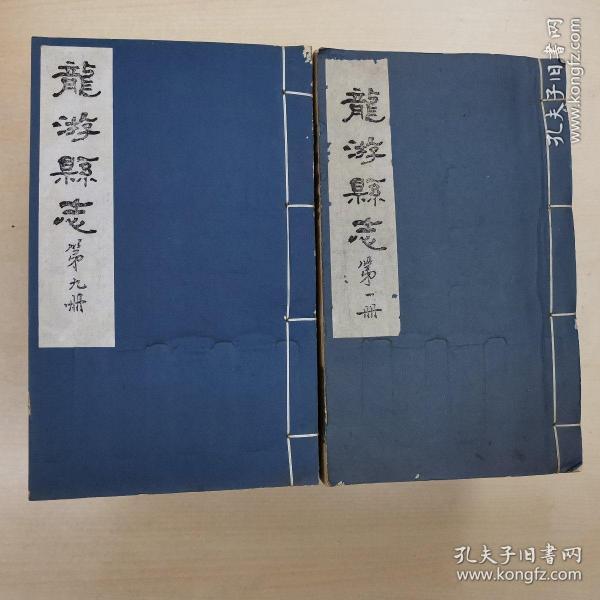 龍游縣志
第九册
龍游縣志
第一册
孔夫子旧书网
www.kongfz.com
孔夫子旧书网
www.kongfz.com